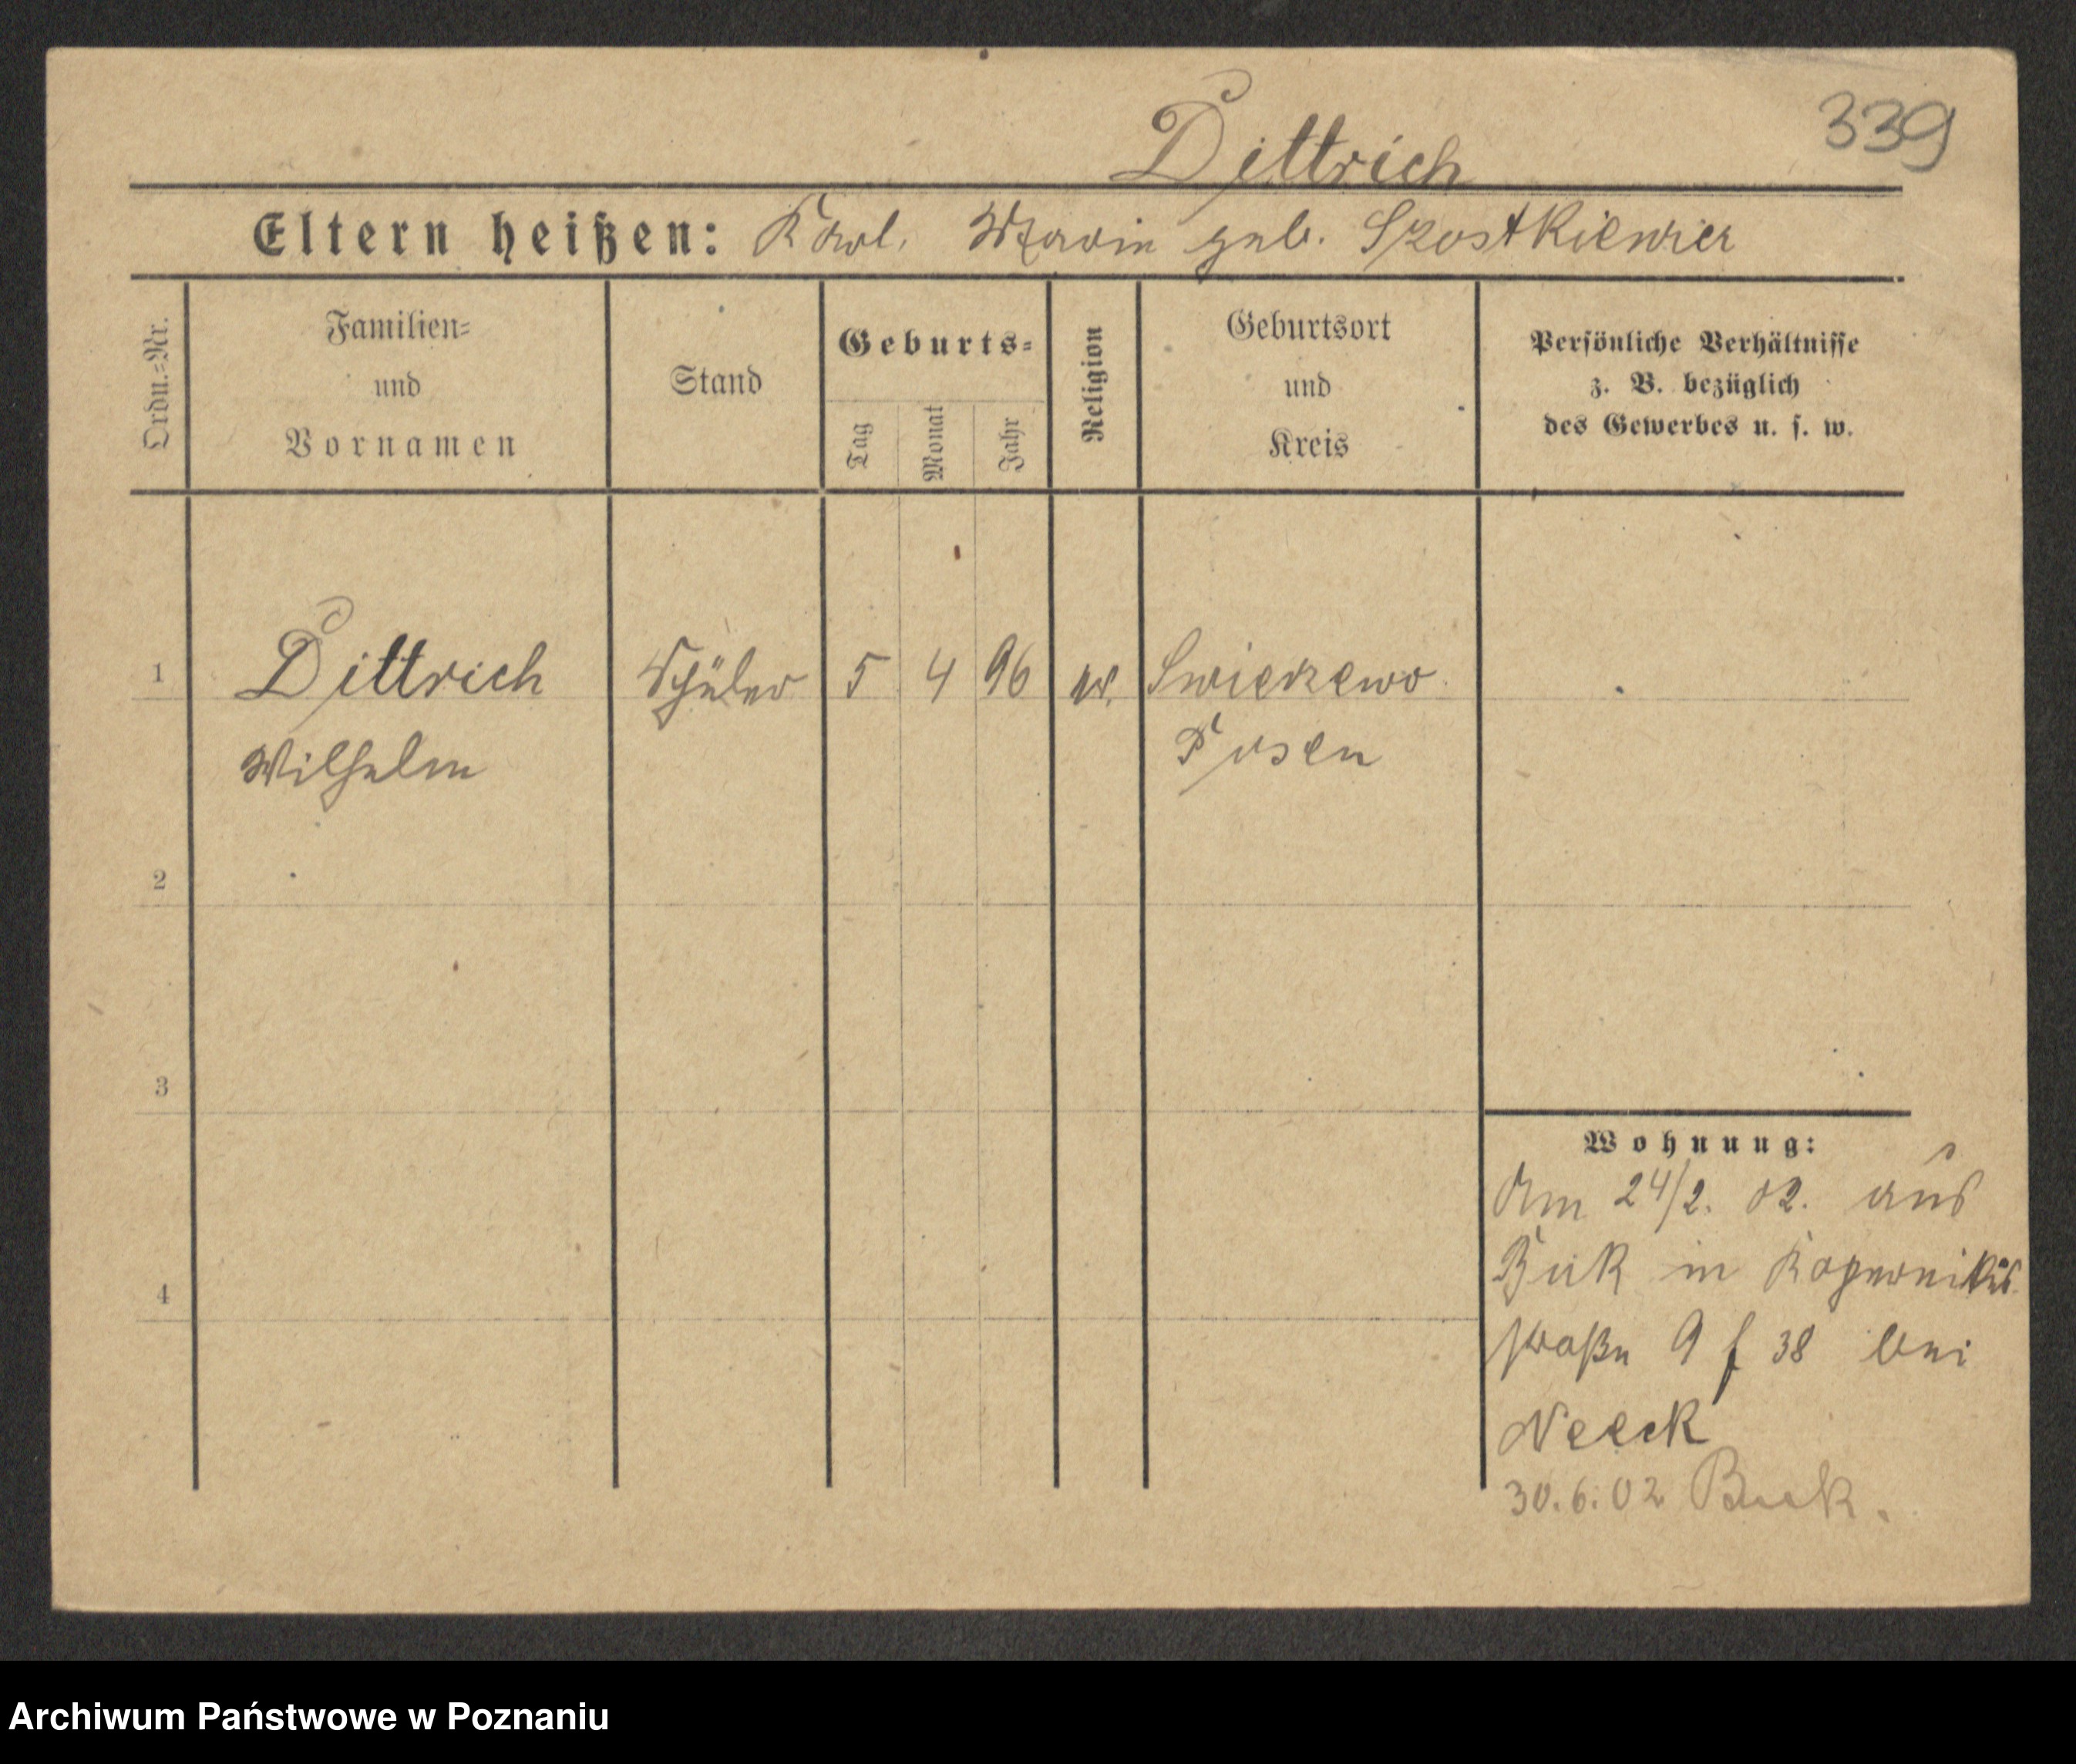 339
Dittrich
Eltern heißen: Karl, Marie geb. Szostkiewicz
Ordn.-Nr.
Familien-
und
Vornamen
Stand
Geburts-
Tag
Monat
Jahr
Religion
Geburtsort
und
Kreis
Persönliche Verhältnisse
z. B. bezüglich
des Gewerbes u. s. w.
1 Dittrich Schüler 5 4 96 ev. Swierzewo
Wilhelm Posen
2
3
4
Wohnung:
Am 24/2. 02. aus
Buk in Kopernikus
straße 9 f 38 bei
Neeck
30.6.02 Buk.
Archiwum Państwowe w Poznaniu